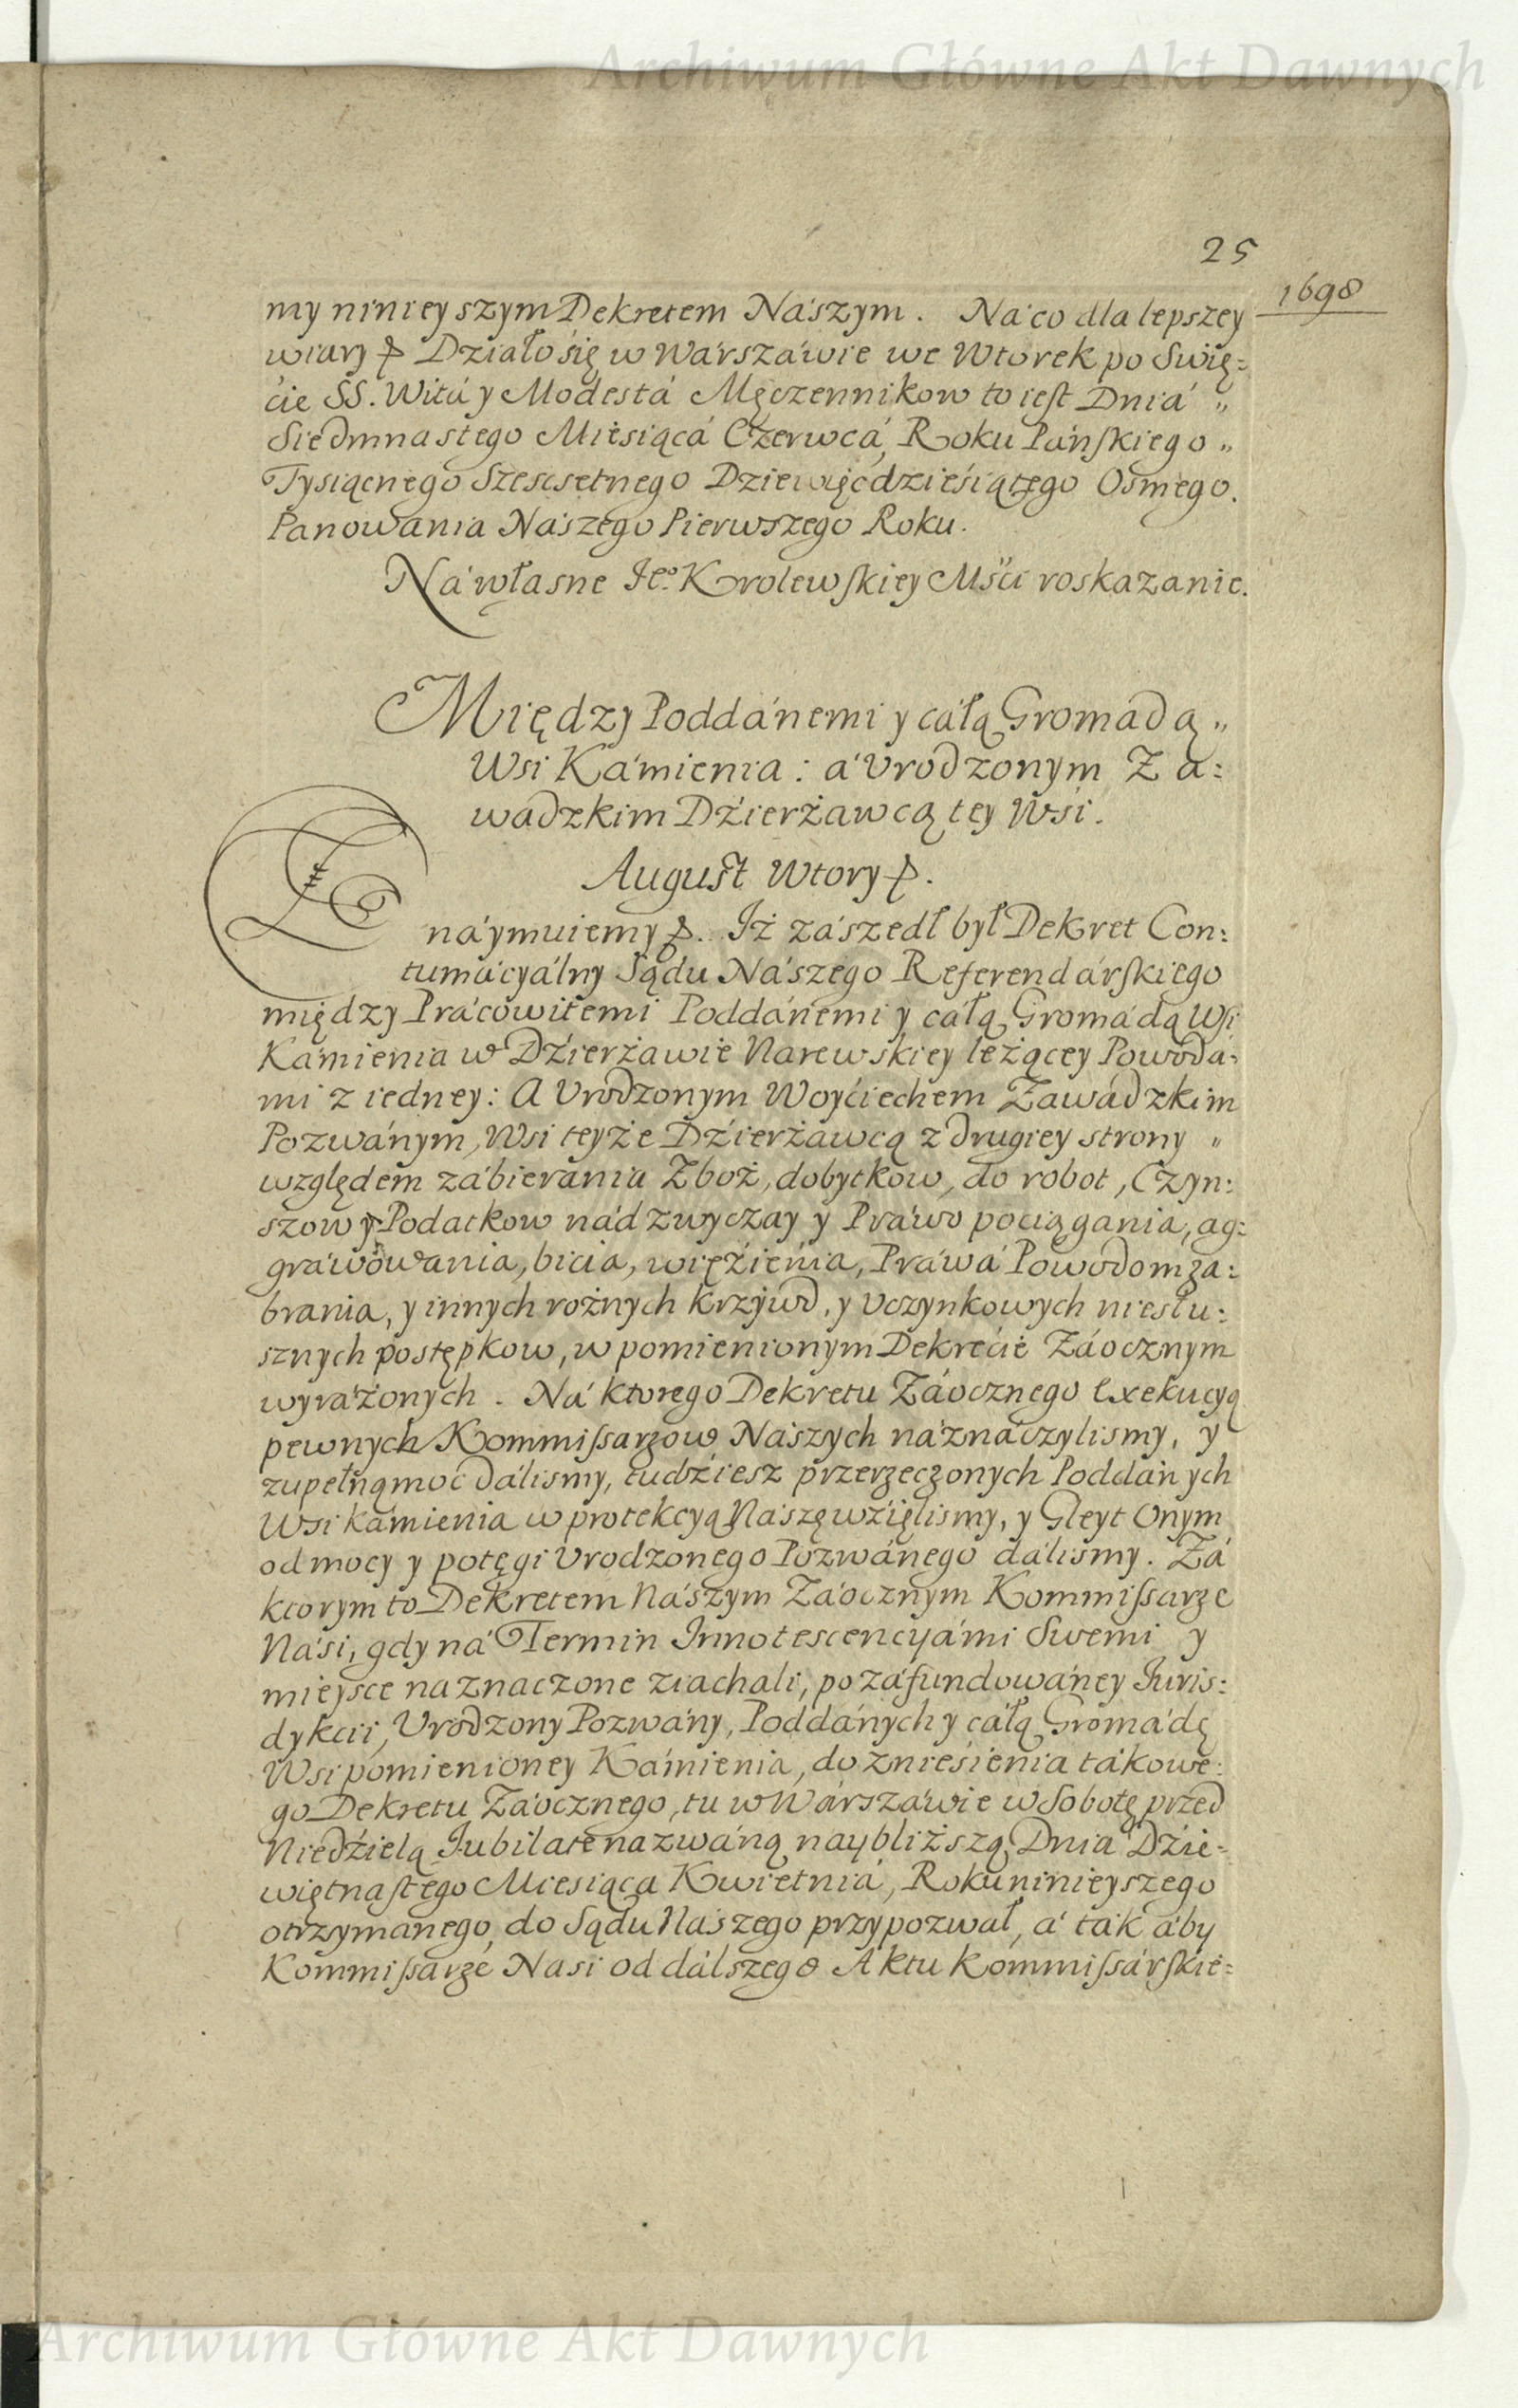 Archiwum Główne Akt Dawnych
25
1698
my ninieyszym Dekretem Nászym. Ná co dla lepszey
wiary & Działo się w Wárszáwie we Wtorek po Swię:
cie SS. Witá y Modestá Męczennikow to iest Dniá „
Siedmnastego Miesiącá Czerwcá, Roku Páńskiego „
Tysiącnego Szescsetnego Dziewięćdzieśiątego Osmego.
Panowania Nászego Pierwszego Roku.
Ná własne Jeo Krolewskiey Mści roskazanie.
Między Poddánemi y cáłą Gromádą „
Wsi Kámienia: á Vrodzonym Zá:
wadzkim Dźierżawcą tey Wśi.
August Wtory &.
Znáymuiemy &. Iż zászedł był Dekret Con:
tumácyálny Sądu Nászego Referendárskiego
między Prácowitemi Poddánemi y cáłą Gromádą Wsi
Kámienia w Dźierżawie Narewskiey leżącey Powodá:
mi z iedney: A Vrodzonym Woyćiechem Zawádzkim
Pozwánym, Wsi teyże Dźierżawcą z drugiey strony „
względem zábierania Zboż, dobytkow, do robot, Czyn:
szow y Podatkow nád zwyczay y Práwo pociągania, ag:
gráwowania, bicia, więźienia, Práwá Powodom za:
brania, y innych rożnych krzywd, y vczynkowych niesłu:
sznych postępkow, w pomienionym Dekrecie Záocznym
wyráżonych. Ná ktorego Dekretu Záocznego exekucyą
pewnych Kommissarzow Nászych náznáczylismy, y
zupełną moc dálismy, tudźiesz przerzeczonych Poddánych
Wsi Kámienia w protekcyą Nászę wźięlismy, y Gleyt Onym
od mocy y potęgi Vrodzonego Pozwánego dálismy. Zá
ktorym to Dekretem Nászym Záocznym Kommissarze
Nási, gdy ná Termin Innotescencyámi Swemi y
mieysce naznaczone ziachali, po záfundowáney Iuris:
dykcii, Vrodzony Pozwány, Poddánych y cáłą Gromádę
Wsi pomienioney Kámienia, do znieśienia tákowe:
go Dekretu Záocznego, tu w Wárszáwie w Sobotę przed
Niedźielą Jubilate nazwáną naybliższą Dnia Dźie:
więtnastego Miesiąca Kwietniá, Roku ninieyszego
otrzymanego, do Sądu Nászego przypozwał, á ták áby
Kommissárze Nasi od dálszego Aktu Kommissárskie:
Archiwum Główne Akt Dawnych